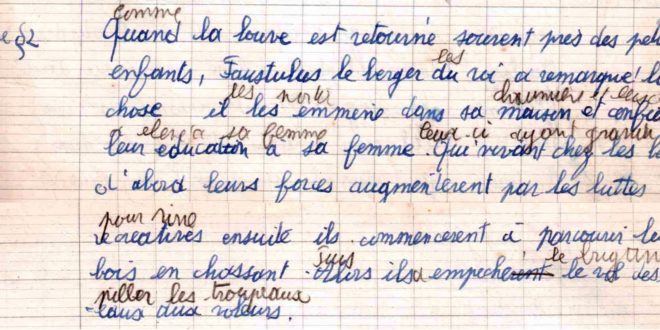 comme
e §2 Quand la louve est retourné souvent près des pe
enfants, Faustulus le berger du roi a remarqué l
les
chose il les emmène dans sa maison et confie
les porta chaumière et
a elever a sa femme ceux ci ayant grandi
leur education à sa femme. Qui vivant chez les b
d'abord leurs forces augmentèrent par les luttes
pour rire
récréatives ensuite ils commencèrent à parcourir le
bois en chassant. Alors ils empechèrent le vol des
puis le brigan
piller les troupeaux
-eaux aux voleurs.